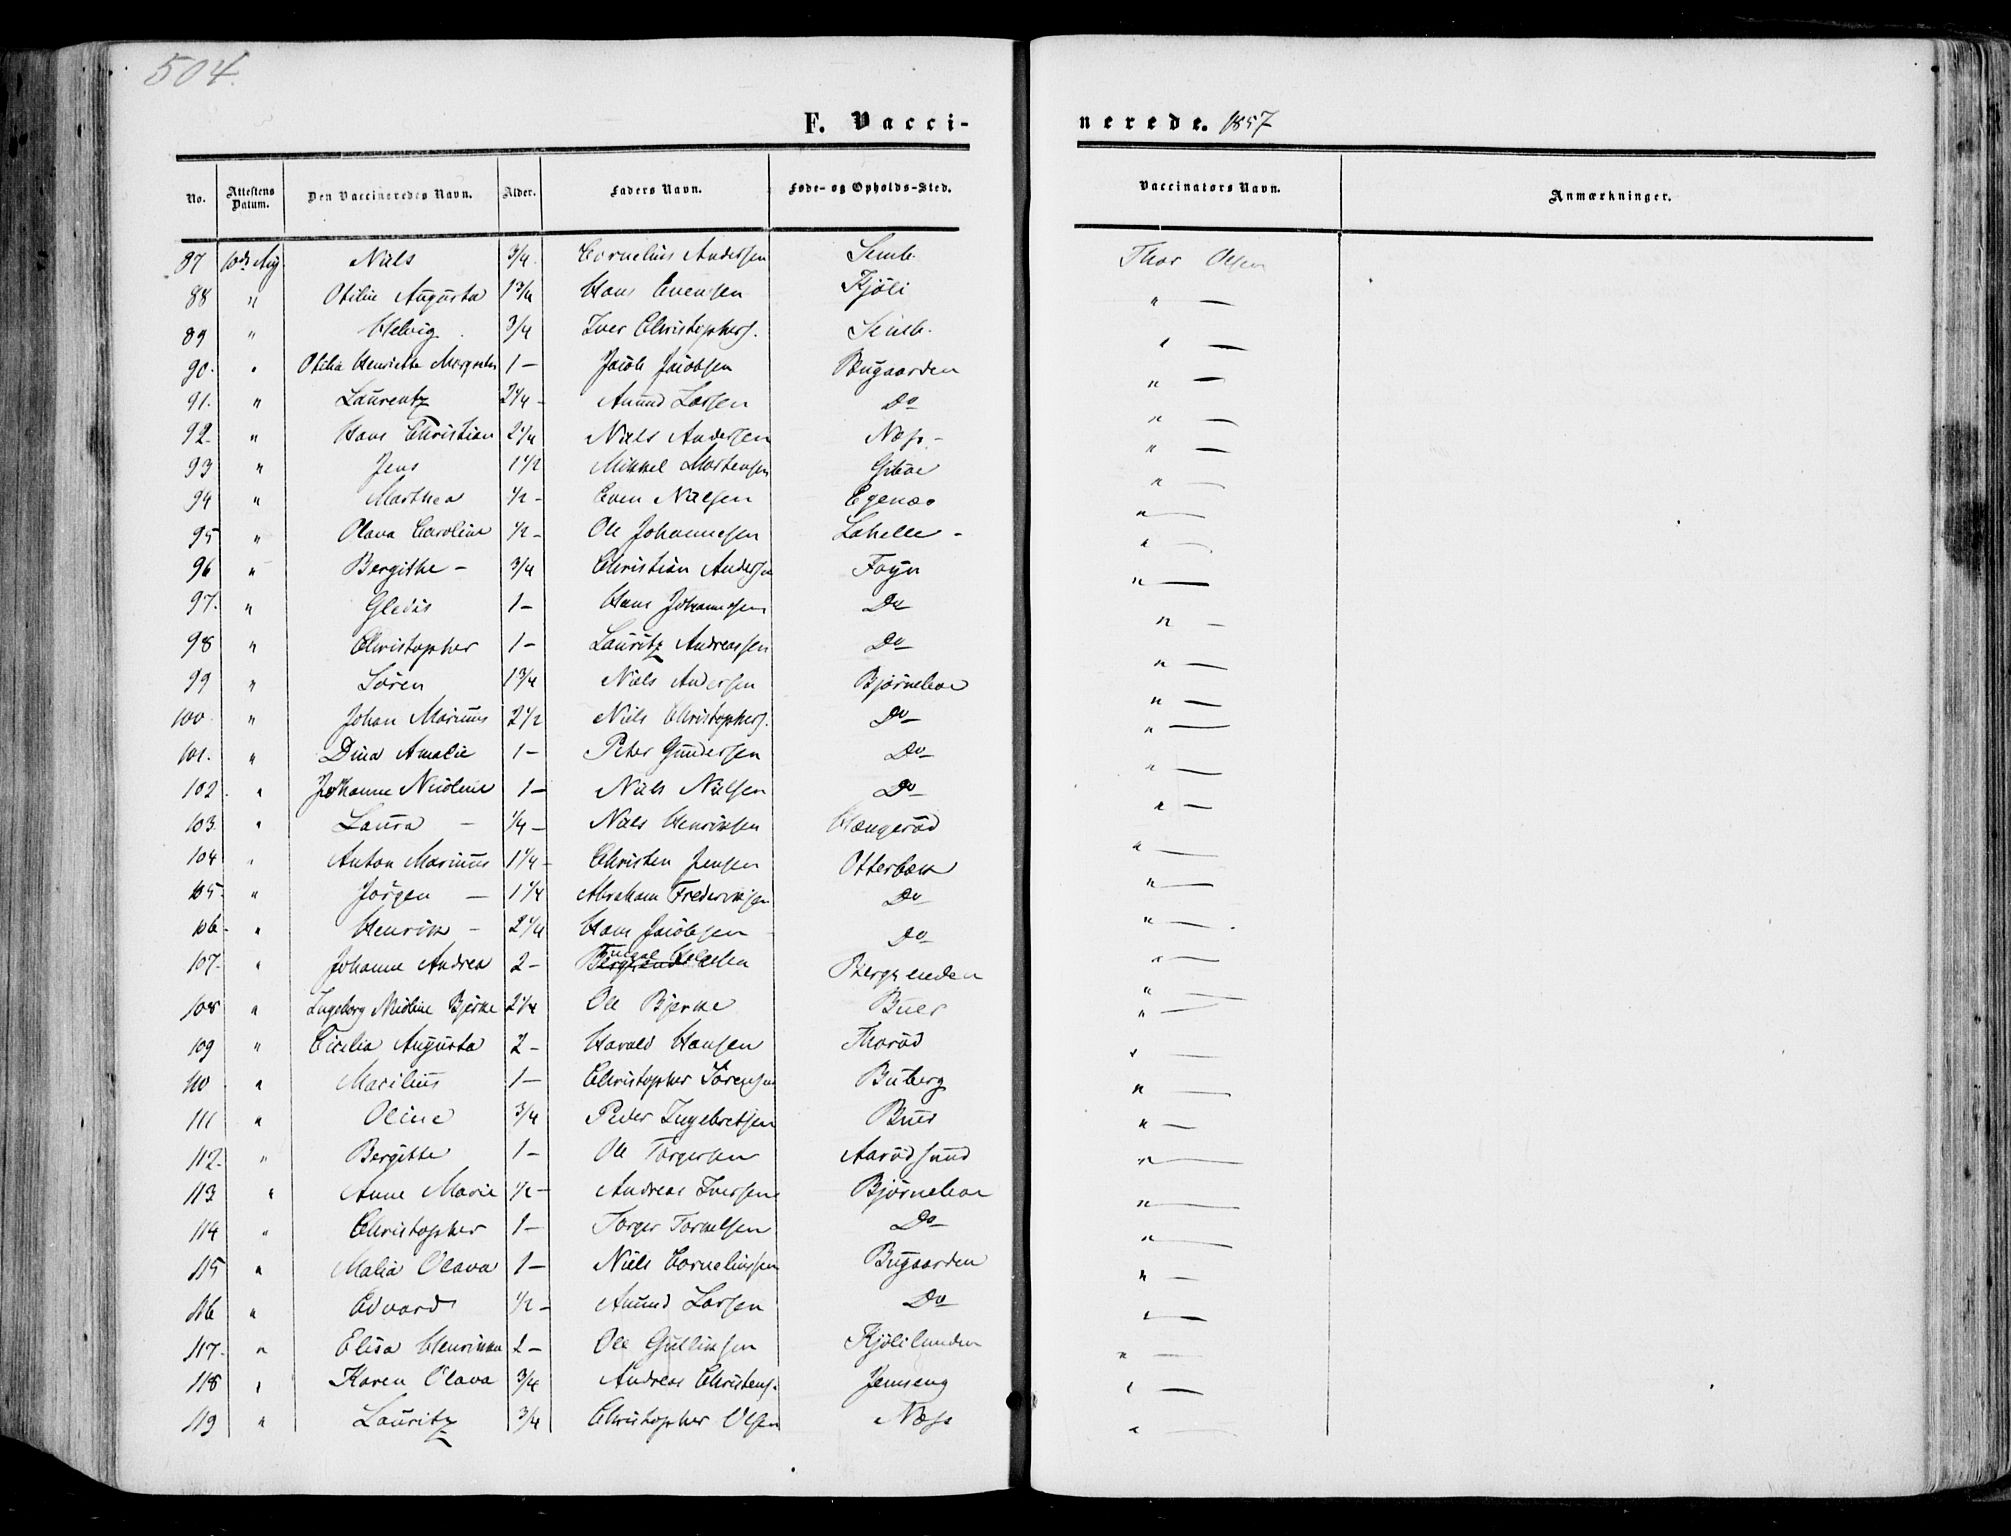 504.
F. Vacci-
nerede. 1857
No. Attestens Datum. Den Vaccineredes Navn. Alder. Faders Navn. Føde- og Opholds-Sted. Vaccinators Navn. Anmærkninger.
87 10de Aug. Niels 3/4. Cornelius Andersen Semb. Thor Olsen
88 " Otilie Augusta 1 3/4 Hans Evensen Kjöli " —
89 " Helvig. 3/4 Iver Christophers. Semb. " —
90. " Otilia Henriette Margrethe 1 — Jacob Jacobsen Bugaarden " —
91. " Laurentz 2 1/4 — Amund Larsen Do " —
92. " Hans Christian 2 1/4 Niels Andersen Næss — " —
93 " Jens 1 1/2 Mikkel Mortensen Giböe " —
94 " Marthea 1/2 — Even Nielsen Egenæs " —
95 " Olava Caroline 1/2 — Ole Johannesen Lahelle — " —
96 " Bergithe — 3/4 Christian Andersen Foÿn " —
97. " 1 — Hans Johannesen Do " —
98 " Christopher 1 — Lauritz Andreassen Do " —
99 " Sören 1 3/4 Niels Andersen Björneboe " —
100. " Johan Marinus 2 1/2 Niels Christophers. Do " —
101. " Dina Amalie 1 — Peter Gundersen Do " —
102. " Johanne Nicoline 1 — Niels Nielsen Do " —
103. " Laura — 1/4 — Niels Henriksen Hængeröd " —
104 " Anton Marinus 1 1/4 — Christen Jensen Otterbæk " —
105. " Jörgen — 1 1/4 Abraham Frederiksen Do " —
106. " Henrik — 2 1/4 Hans Jacobsen Do " —
107. " Johanne Andrea 2 — Helgesen Bergsenden " —
108 " Ingeborg Nicoline Bjerke 2 1/4 Ole Bjerke Buer " —
109 " Cicilia Augusta 2 — Harald Hansen Thoröd " —
110 " Marilius 1 — Christopher Sörensen Buberg " —
111 " Oline 3/4 Peder Ingebretsen Buer " —
112. " Bergitte 1 — Ole Torgersen Aarödsund " —
113 " Anne Marie 1/2 — Andreas Iversen Björneboe " —
114 " Christopher 1 — Torger Torkelsen Do " —
115 " Malia Olava 1 — Niels Corneliussen Bugaarden " —
116 " Edvard 1/2 — Amund Larsen Do " —
117. " Elisa Henrikka 2 — Ole Gulliksen Kjölilunden " —
118 " Karen Olava 3/4 Andreas Christens. Jemseng " —
119 " Lauritz 3/4 Christopher Olsen Næss " —